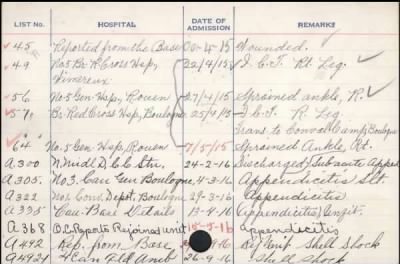 LIST No. HOSPITAL DATE OF ADMISSION REMARKS
45 Reported from the Base 06-4-15 Wounded.
49 No5 Br. R. Cross Hsp, 22/4/15 I.C.T. Rt Leg.
Wimereux
56 No.5 Gen. Hsp, Rouen 27/4/15 Sprained ankle, R.
57 Br. Red Cross Hsp, Boulogne 25/4/15 I.C.T. R. Leg
Trans to Conval Camp Boulogne
64 No.5 Gen Hsp, Rouen 7/5/15 Sprained Ankle, Rt.
A300 N. Mid D.C.C. Stn, 24-2-16 Discharged Subacute Appen
A305. No3. Can Gen Boulogne, 4-3-16 Appendicitis Slt.
A322 No1 Conv. Depot, Boulogne 29-3-16 Appendicitis
A335 Can. Base Details 13-4-16 (Appendicitis)
A368 O.C. Reports Rejoined unit 15-5-16 appendicitis
A442 Rep. from Base -9-16 Shell Shock
A4424 4 Can Fld Amb 26-9-16 Shell Shock